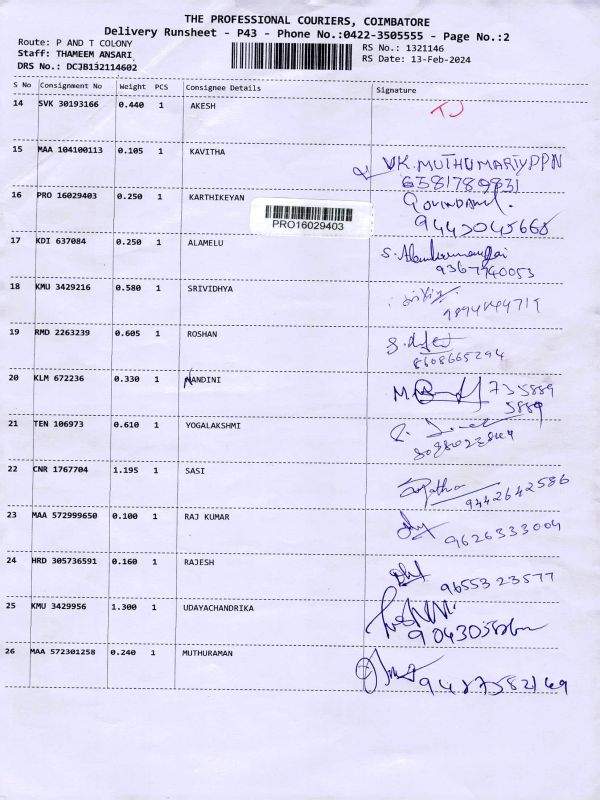 THE PROFESSIONAL COURIERS, COIMBATORE
Delivery Runsheet - P43 - Phone No.:0422-3505555 - Page No.:2
Route: P AND T COLONY
RS No.: 1321146
Staff: THAMEEM ANSARI
RS Date: 13-Feb-2024
DRS No.: DCJB132114602
S No Consignment No Weight PCS Consignee Details Signature
14 SVK 30193166 0.440 1 AKESH TJ
15 MAA 104100113 0.105 1 KAVITHA VK.MUTHUMARIYPPN
6581789831
16 PRO 16029403 0.250 1 KARTHIKEYAN
9443045668
PRO16029403
17 KDI 637084 0.250 1 ALAMELU
9367740053
18 KMU 3429216 0.580 1 SRIVIDHYA
19 RMD 2263239 0.605 1 ROSHAN
8608665294
20 KLM 672236 0.330 1 NANDINI 735889
5889
21 TEN 106973 0.610 1 YOGALAKSHMI
22 CNR 1767704 1.195 1 SASI
9442642586
23 MAA 572999650 0.100 1 RAJ KUMAR
9626333004
24 HRD 305736591 0.160 1 RAJESH
9655323577
25 KMU 3429956 1.300 1 UDAYACHANDRIKA
26 MAA 572301258 0.240 1 MUTHURAMAN
9487582169